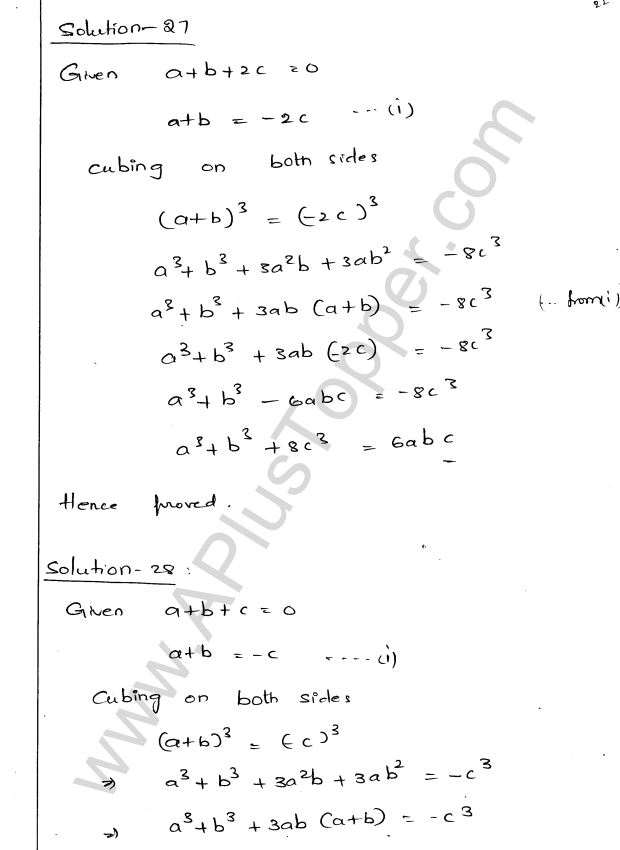 Solution-27
Given a+b+2c = 0
a+b = -2c ---(i)
cubing on both sides
(a+b)³ = (-2c)³
a³+b³+3a²b+3ab² = -8c³
a³+b³+3ab(a+b) = -8c³ (.. from i)
a³+b³+3ab(-2c) = -8c³
a³+b³-6abc = -8c³
a³+b³+8c³ = 6abc
Hence proved.
Solution-28:
Given a+b+c=0
a+b = -c ----(i)
Cubing on both sides
(a+b)³ = (-c)³
⇒ a³+b³+3a²b+3ab² = -c³
⇒ a³+b³+3ab(a+b) = -c³
www.APlusTopper.com